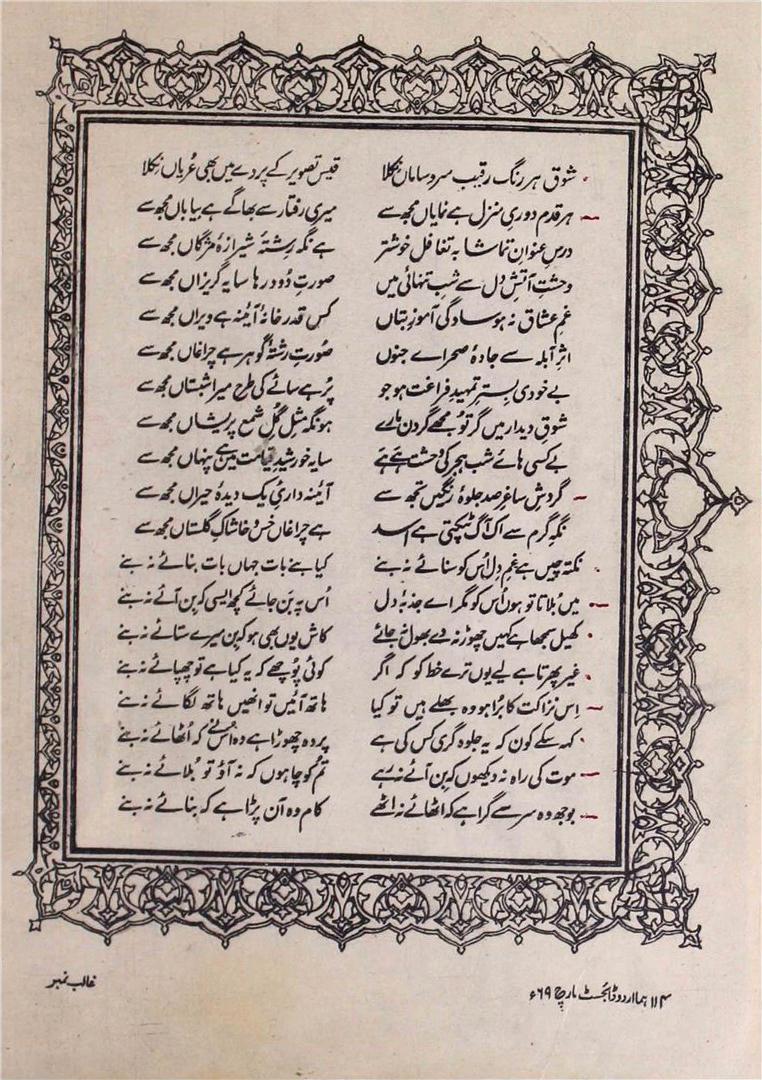 شوق ہر رنگ رقیب سروساماں نکلا قیس تصویر کے پردے میں بھی عُریاں نکلا
ہر قدم دوریِ منزل ہے نمایاں مجھ سے میری رفتار سے بھاگے ہے بیاباں مجھ سے
درسِ عنوانِ تماشا بہ تغافل خوشتر ہے نگہ رِشتۂ شیرازۂ مژگاں مجھ سے
وحشتِ آتشِ دل سے شبِ تنہائی میں صورتِ دُود رہا سایہ گریزاں مجھ سے
غمِ عشاق نہ ہو سادگی آموزِ بتاں کس قدر خانۂ آئینہ ہے ویراں مجھ سے
اثرِ آبلہ سے جادۂ صحراے جنوں صُورتِ رشتۂ گوہر ہے چراغاں مجھ سے
بے خودی بسترِ تمہیدِ فراغت ہو جو پُر ہے سائے کی طرح میرا شبستاں مجھ سے
شوقِ دیدار میں گر تُو مجھے گردن مارے ہو نگہ مثلِ گُلِ شمع پریشاں مجھ سے
بے کسی ہائے شبِ ہجر کی وحشت ہے ہے سایہ خورشیدِ قیامت میں ہے پنہاں مجھ سے
گردشِ ساغرِ صد جلوۂ رنگیں تجھ سے آئینہ داریِ یک دیدۂ حیراں مجھ سے
نگہِ گرم سے اک آگ ٹپکتی ہے اسد ہے چراغاں خس و خاشاکِ گلستاں مجھ سے
نکتہ چیں ہے غمِ دل اُس کو سنائے نہ بنے کیا بنے بات جہاں بات بنائے نہ بنے
میں بُلاتا تو ہوں اُس کو مگر اے جذبۂ دل اُس پہ بَن جائے کچھ ایسی کہ بِن آئے نہ بنے
کھیل سمجھا ہے کہیں چھوڑ نہ دے بھول نہ جائے کاش یوں بھی ہو کہ بِن میرے ستائے نہ بنے
غیر پھرتا ہے لیے یوں ترے خط کو کہ اگر کوئی پُوچھے کہ یہ کیا ہے تو چھپائے نہ بنے
اِس نزاکت کا بُرا ہو وہ بھلے ہیں تو کیا ہاتھ آئیں تو انھیں ہاتھ لگائے نہ بنے
کہہ سکے کون کہ یہ جلوہ گری کس کی ہے پردہ چھوڑا ہے وہ اُس نے کہ اُٹھائے نہ بنے
موت کی راہ نہ دیکھوں کہ بِن آئے نہ رہے تم کو چاہوں کہ نہ آؤ تو بُلائے نہ بنے
بوجھ وہ سر سے گرا ہے کہ اٹھائے نہ اٹھے کام وہ آن پڑا ہے کہ بنائے نہ بنے
۱۱۴ ہما اردو ڈائجسٹ مارچ ۶۹ء غالب نمبر